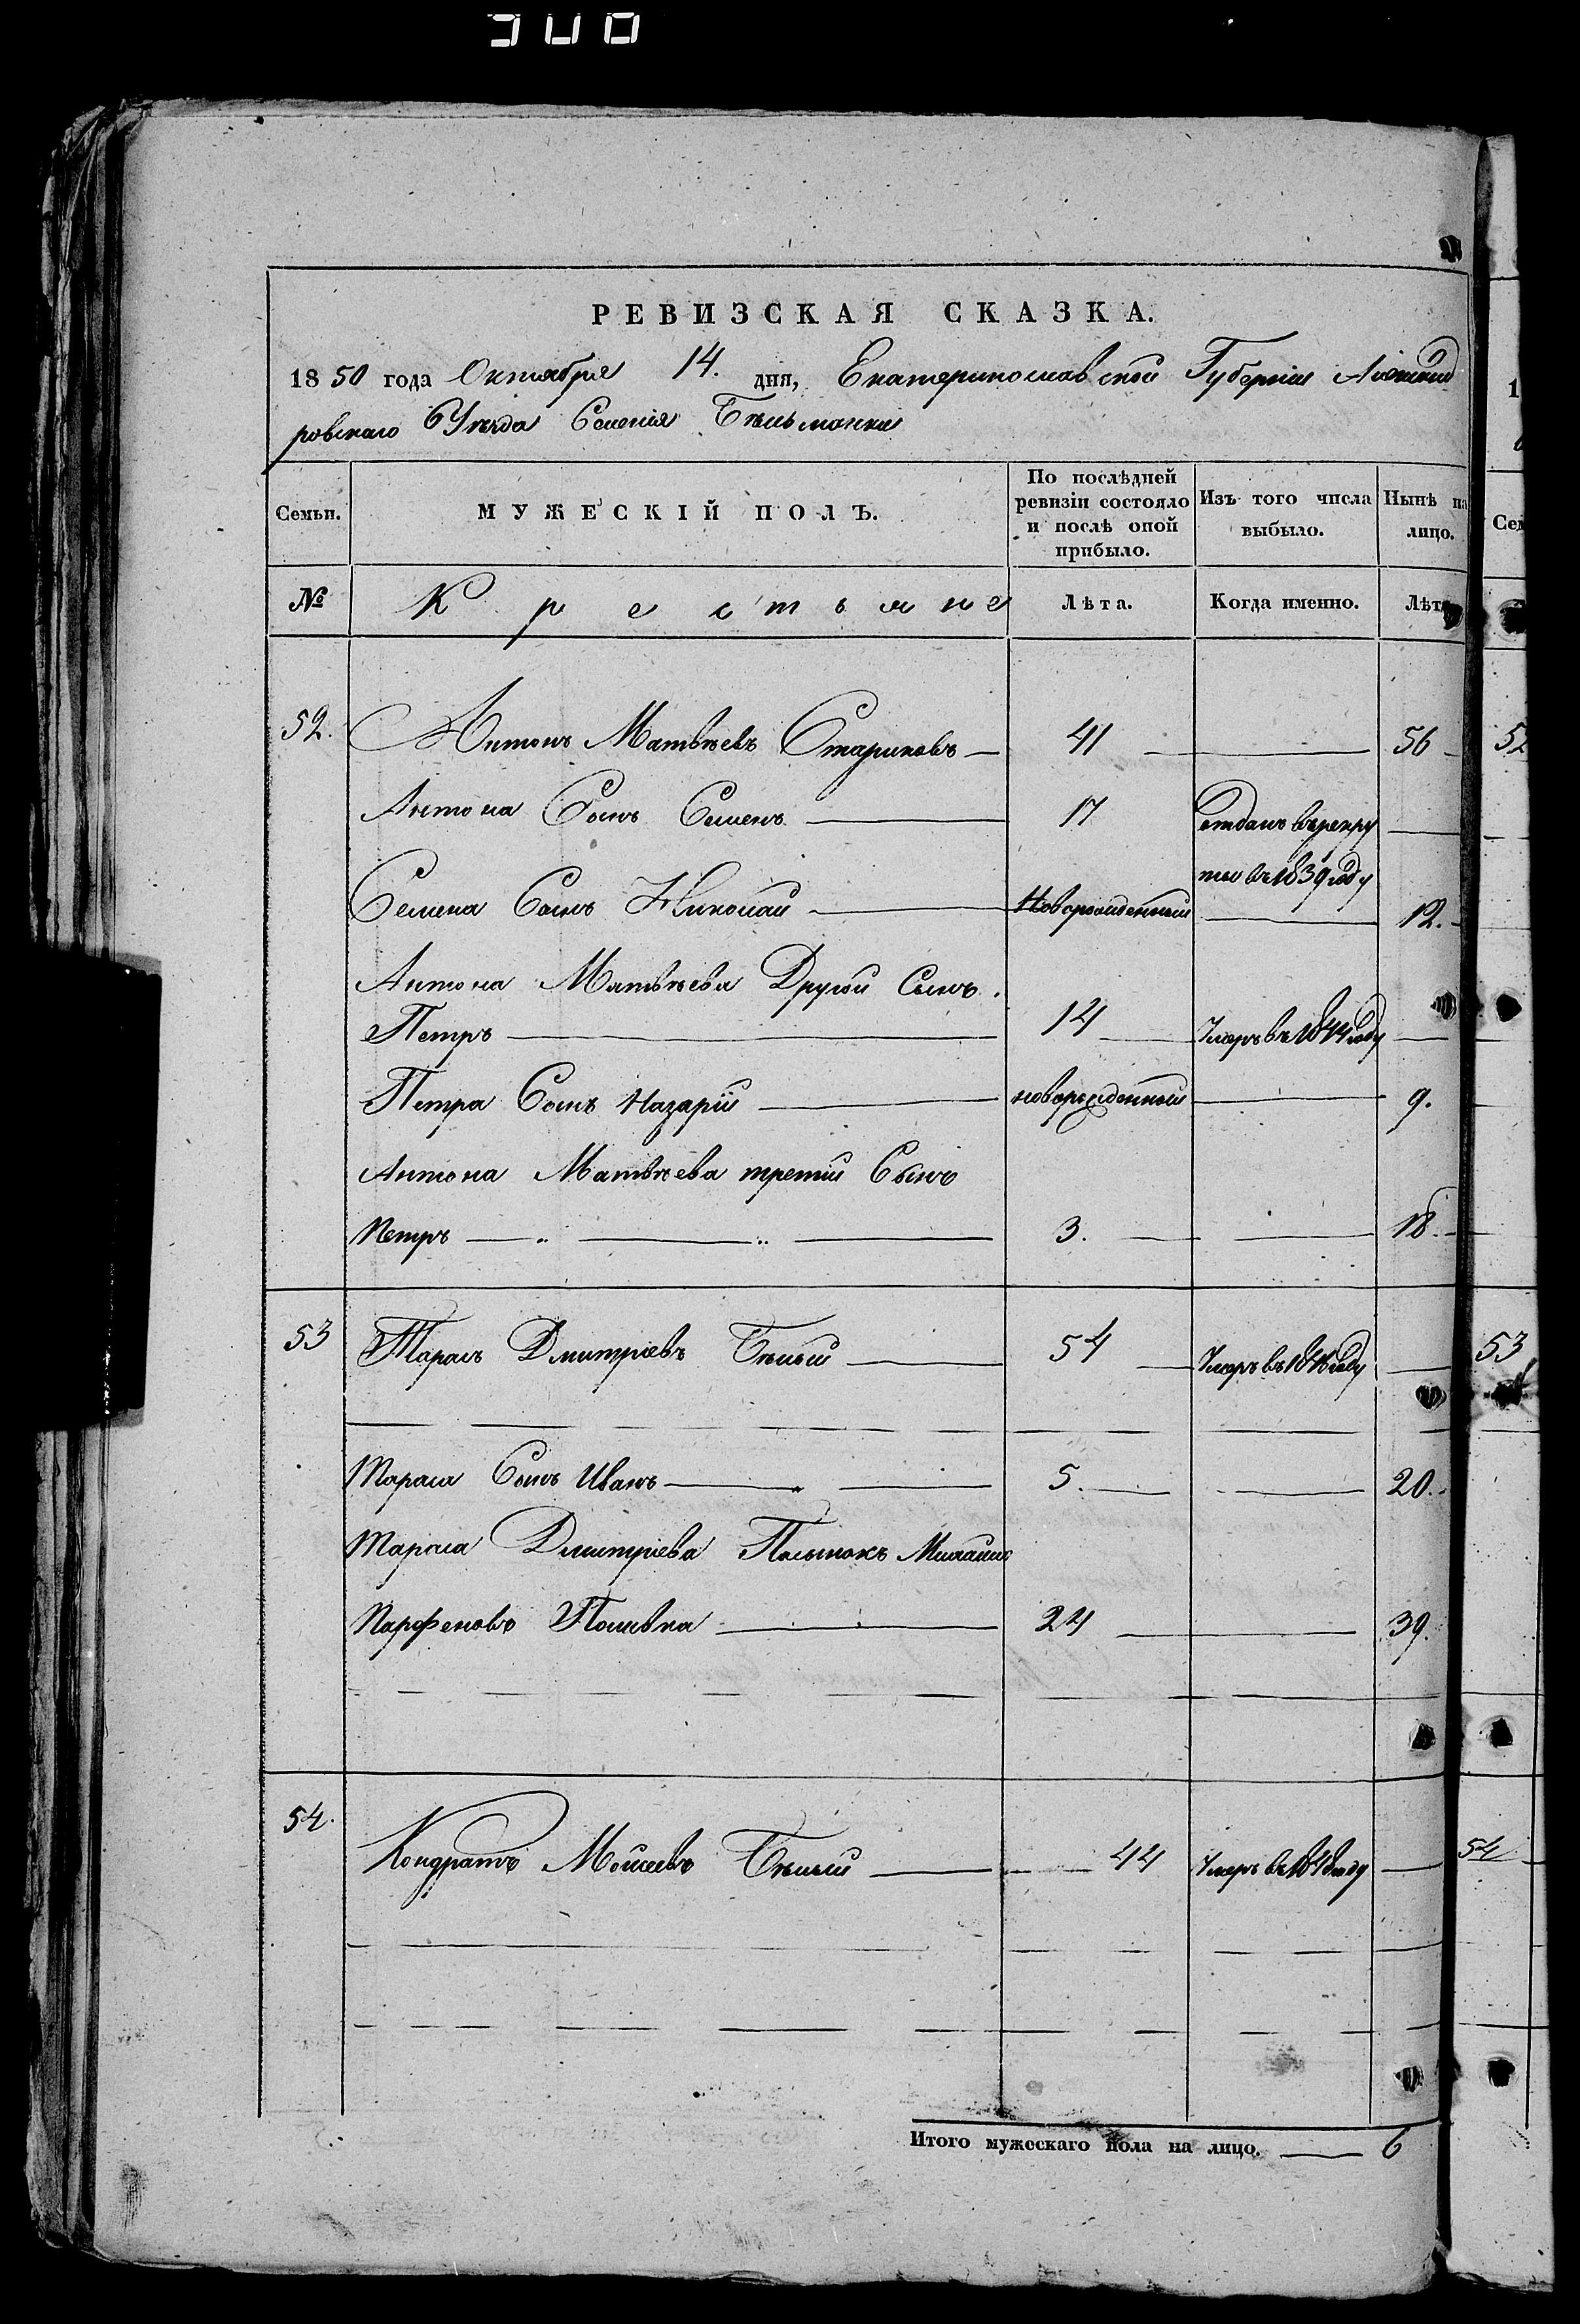 300
РЕВИЗСКАЯ СКАЗКА.
1850 года Октября 14. дня, Екатеринославской Губернии Александ
ровскаго Уѣзда Селенія Бѣльманки
Семьи. МУЖЕСКІЙ ПОЛЪ. По послѣдней ревизіи состояло и послѣ оной прибыло. Изъ того числа выбыло. Нынѣ на лицо.
№ Крестьяне Лѣта. Когда именно. Лѣта
52. Антонъ Матвѣевъ Стариковъ 41 56
Антона Сынъ Семенъ 17 Отданъ въ рекру
ты въ 1839 году
Семена Сынъ Николай Новорожденный 12.
Антона Матвѣева Другой Сынъ.
Петръ 14 Умеръ въ 1844 году
Петра Сынъ Назарій новорожденный 9.
Антона Матвѣева третій Сынъ
Петръ 3. 18.
53 Тарасъ Дмитріевъ Бѣлый 54 Умеръ въ 1846 году
Тараса Сынъ Иванъ 5. 20.
Тараса Дмитріева Пасынокъ Михаилъ
Парфеновъ 24 39.
54. Кондратъ Моисеевъ Бѣлый 44 Умеръ въ 1848 году
Итого мужескаго пола на лицо. 6
52
53
54